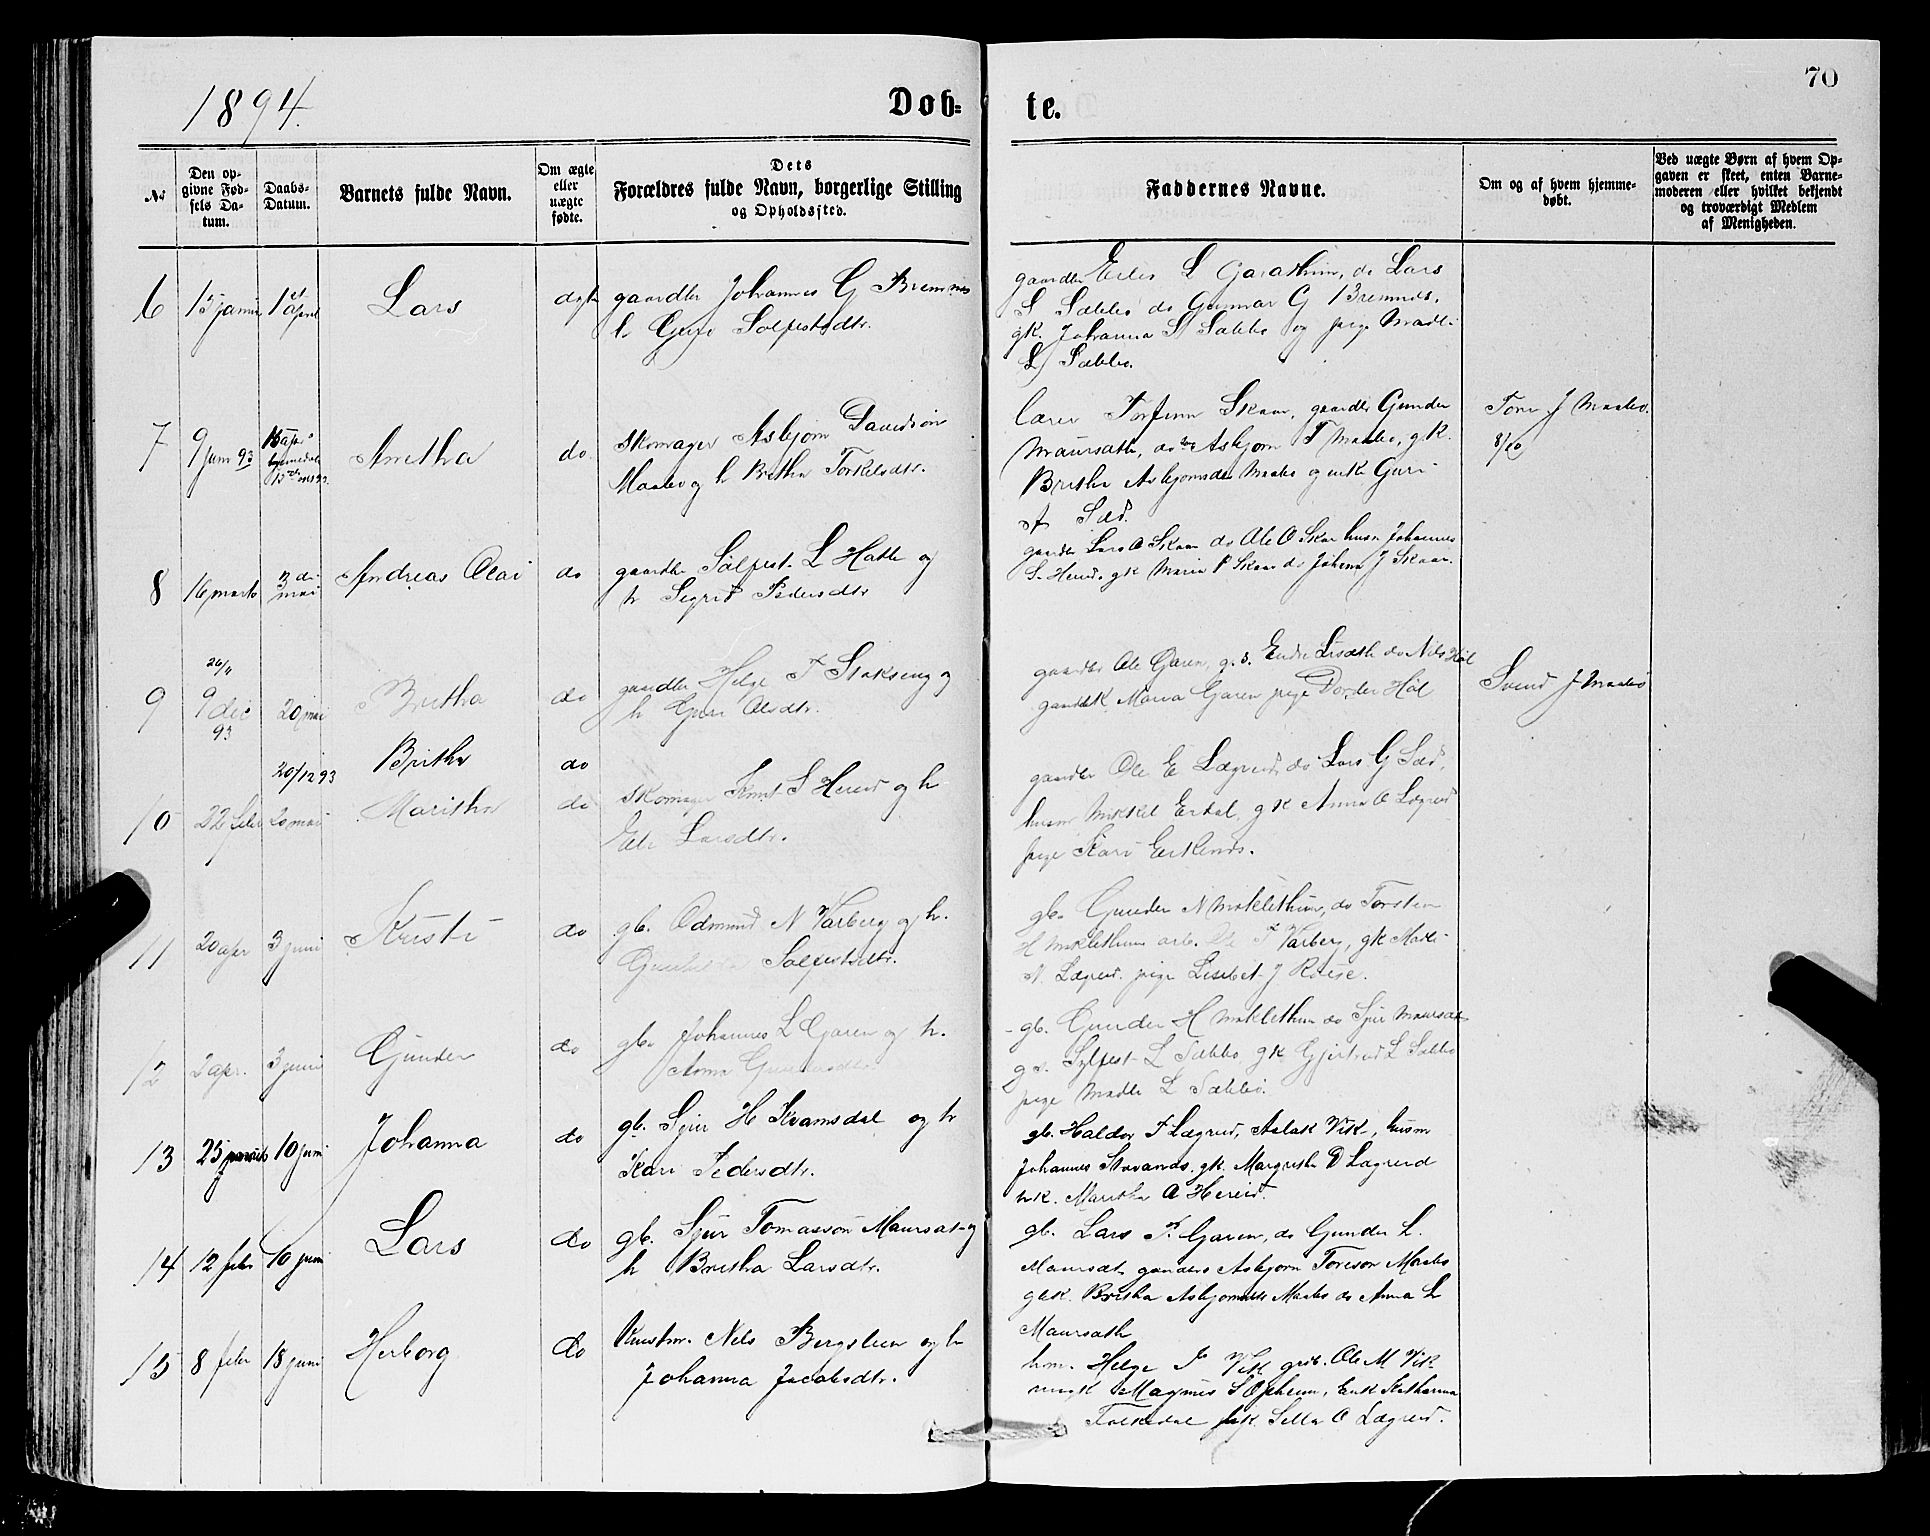 1894.
Døb-
te.
70
No
Den op-
givne Fød-
sels Da-
tum.
Daabs-
Datum.
Barnets fulde Navn.
Om ægte
eller
uægte
fødte.
Dets
Forældres fulde Navn, borgerlige Stilling
og Opholdssted.
Faddernes Navne.
Om og af hvem hjemme-
døbt.
Ved uægte Børn af hvem Op-
gaven er skeet, enten Barne-
moderen eller hvilket bekjendt
og troværdigt Medlem
af Menigheden.
6
Lars
gaardbr Johannes G Bremnes
h Guro Solfestsdtr.
L Garathun, do Lars
S Sæbbø do Gunnar G Bremnes,
gk. Johanna S Sæbbø og pige Madli
L Sæbbø.
7
9 juni 93
Anetha
do
Skomager Asbjørn Davidsøn
Maabø og h Britha Torkelsdtr.
Lærer Torfinn Skaar, gaardbr Gunder
Maursæth, do Asbjørn T Maabø, gk.
Britha Asbjørnsdtr Maabø og enke Guri
Sæd.
Tore J Maabø.
8/10
8
16 marts
3die
mai
Andreas Olai
do
gaardbr Solfest L Hatle og
h Sigrid Pedersdtr
gaardbr Lars O Skaar do Ole O Skar husm Johannes
S. Hereid, gk Maria P Skaar do Johanna J Skaar.
9
26/11
9 dec
93
20 mai
Britha
do
gaardbr Helge T Stokseng og
h Guri Olsdtr.
gaardbr Ole Garen, g.s. Endre Lisæth do Nils Høl
gaardbk. Maria Garen pige Dorde Høl
Svend J Maabø
20/12 93
Britha
do
10
22 febr
20 mai
Maritha
do
Skomager Knut S Hereid og h
Eli Larsdtr.
gaardbr Ole E Lægreid, do Lars G Sæd,
husm Mikkel Erdal, gk Anna O Lægreid
pige Kari
11
20 apr
3 juni
Kristi
do
gb. Odmund N Varberg og h.
Solfestsdtr.
gb. Gunder N Myklethun, do Torstein
H Myklethun arb. Ole T Varberg, gk Madli
N. Lægreid. pige Lisbet J
12
2 apr.
3 juni
Gunder
do
gb. Johannes L Garen og h.
Anna Gundersdtr
gb. Gunder H Myklethun do Sjur Maursæt
g s. Sylfest L Sæbbø, gk Gjertrud L Sæbbø
pige Madli L Sæbbø.
13
25 marts
10 juni
Johanna
do
gb. Sjur H Kvamsdal og h
Kari Pedersdtr.
gb. Haldor T Lægreid, Aslak Vik, husm
Johannes gk. Margretha D Lægreid
hk. Maritha O Hereid.
14
12 febr
10 juni
Lars
do
gb. Sjur Tomassøn Maursæt og
h Britha Larsdtr.
gb. Lars T. Garen, do Gunder L.
Maursæt, gaardbrs Asbjørn Toresøn Maabø
gbk. Britha Asbjørnsdtr Maabø do Anna L
Maursæth
15
8 febr
18 juni
Herborg
do
Kunstm. Nils Bergslien og h
Johanna Jacobsdtr.
hm. Helge J. Vik grb. Ole M Vik
Magnus S Opheim, Enk Katharina
Folkedal Sella O Lægreid.